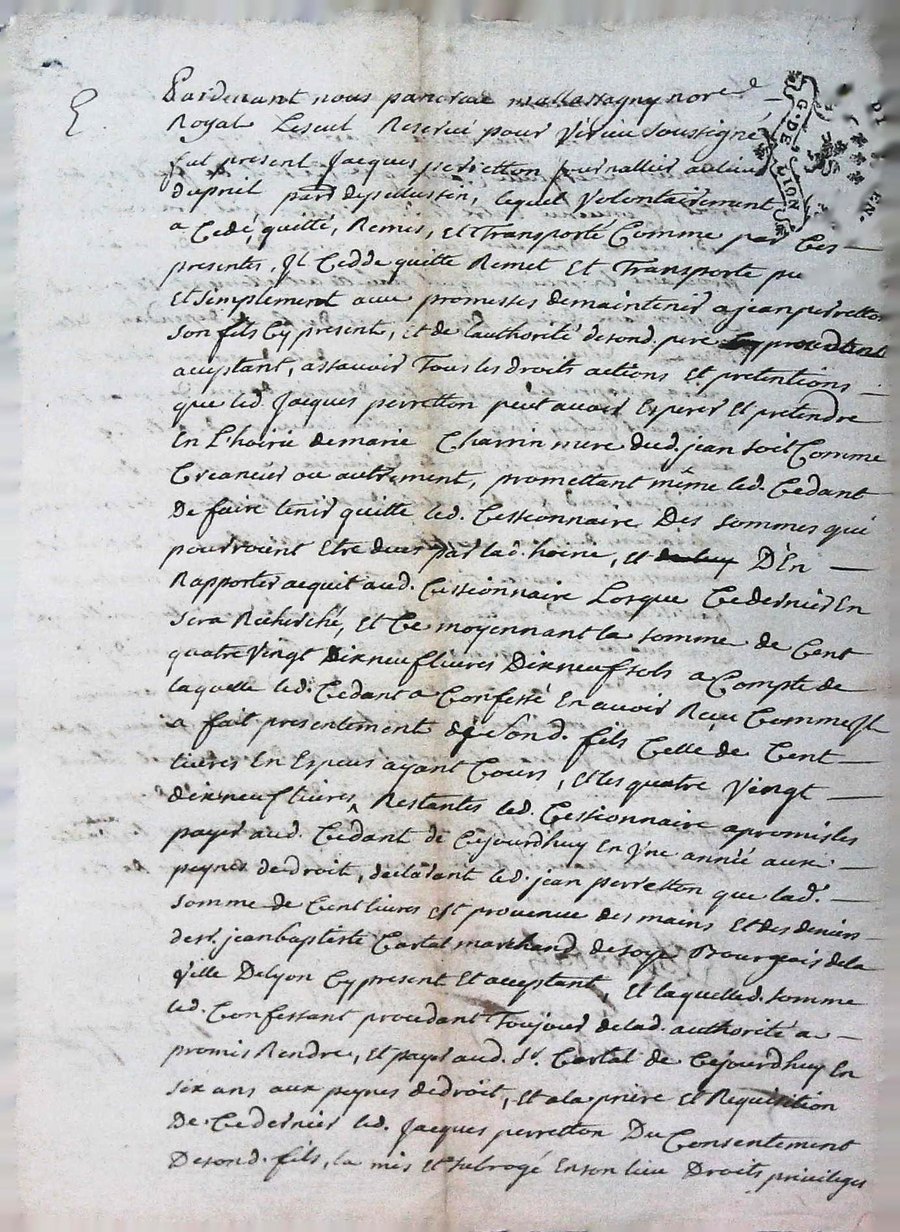 Pardevant nous pancrace mallassagny nore
Royal Lescul Reservé pour Virieu soussigné,
fut present Jacques perretton journallier au lieu
dupuil parr de pellussin, lequel Volontairement
a Cedé, quitté, Remis, et Transporté Comme par Ces
presentes, Il Cedde quitte Remet Et Transporte pu
Et simplement avec promesses demaintenir a jean perretton
son fils Cy present, et de lauthorité desond. pere
acceptant, assavoir Tous les droits actions Et pretentions
que led. Jacques perretton peut avoir Esperer Et pretendre
En L'hoirie demarie Charrin mere dud. jean soit Comme
Creancier ou autrement, promettant même led. Cedant
De faire tenir quitte led. Cessionnaire Des sommes qui
pourroient Etre dues par lad. hoirie, et D'En
Rapporter acquit aud. Cessionnaire Lorsque Cedernier En
sera Recherché, Et Ce moyennant la somme de Cent
quatre Vingt Dixneuf livres Dixneuf sols a Compte de
laquelle led. Cedant a Confessé En avoir Reçu Comme Il
a fait presentement de sond. fils Celle de Cent
livres En Especes ayant Cours, Et les quatre Vingt
dixneuf livres Restantes led. Cessionnaire apromis les
payer aud. Cedant de Cejourdhuy En Une année aux
peynes de droit, declarant led. jean perretton que lad.
somme de Cent livres est provenue des mains Et des deniers
de sr. jean baptiste Cartal marchand de soye Bourgeois dela
Ville Delyon Cy present Et acceptant, Et laquelle d. somme
led. Confessant procedant Toujour de lad. authorité a
promis Rendre, Et payer aud. Sr. Cartal de Cejourdhuy En
six ans aux peynes de droit, Et a la priere Et Requisition
De Cedernier led. Jacques perretton Du Consentement
De sond. fils, la mis Et subrogé En son lieu Droits privileges
G. DE LION